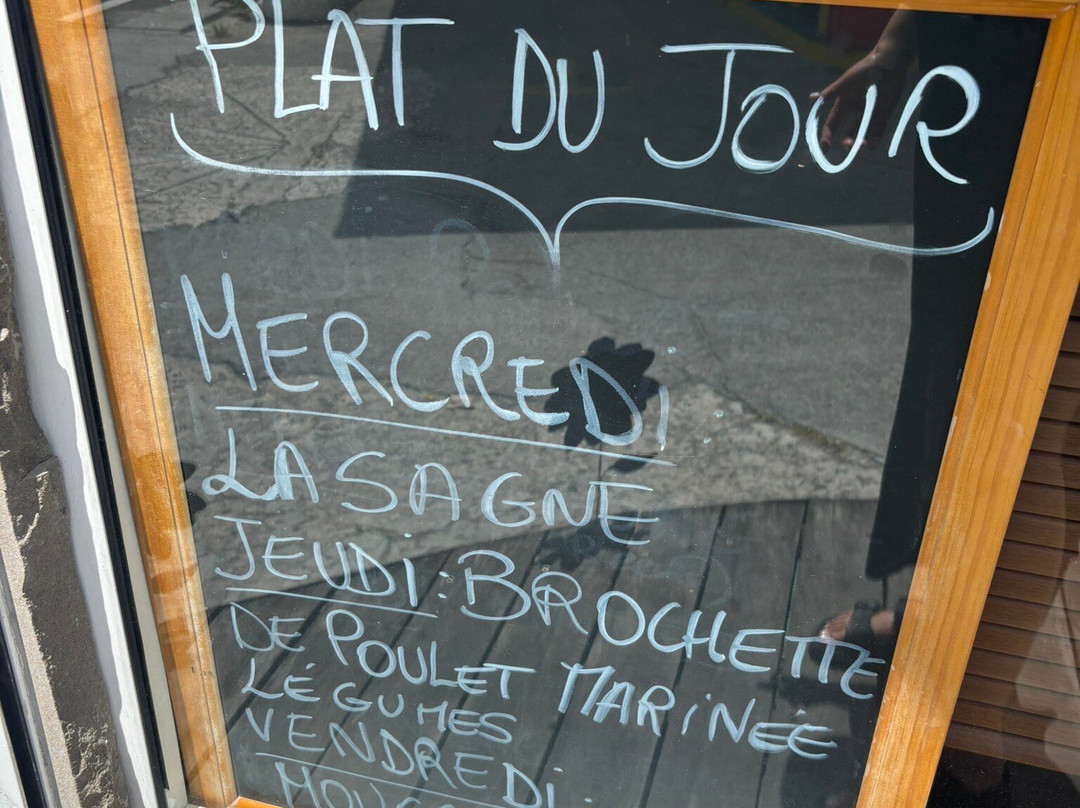 PLAT DU JOUR
MERCREDi
LASAGNE
JEUDi: BROCHETTE
DE POULET MARiNÉE
LÉGUMES
VENDREDi